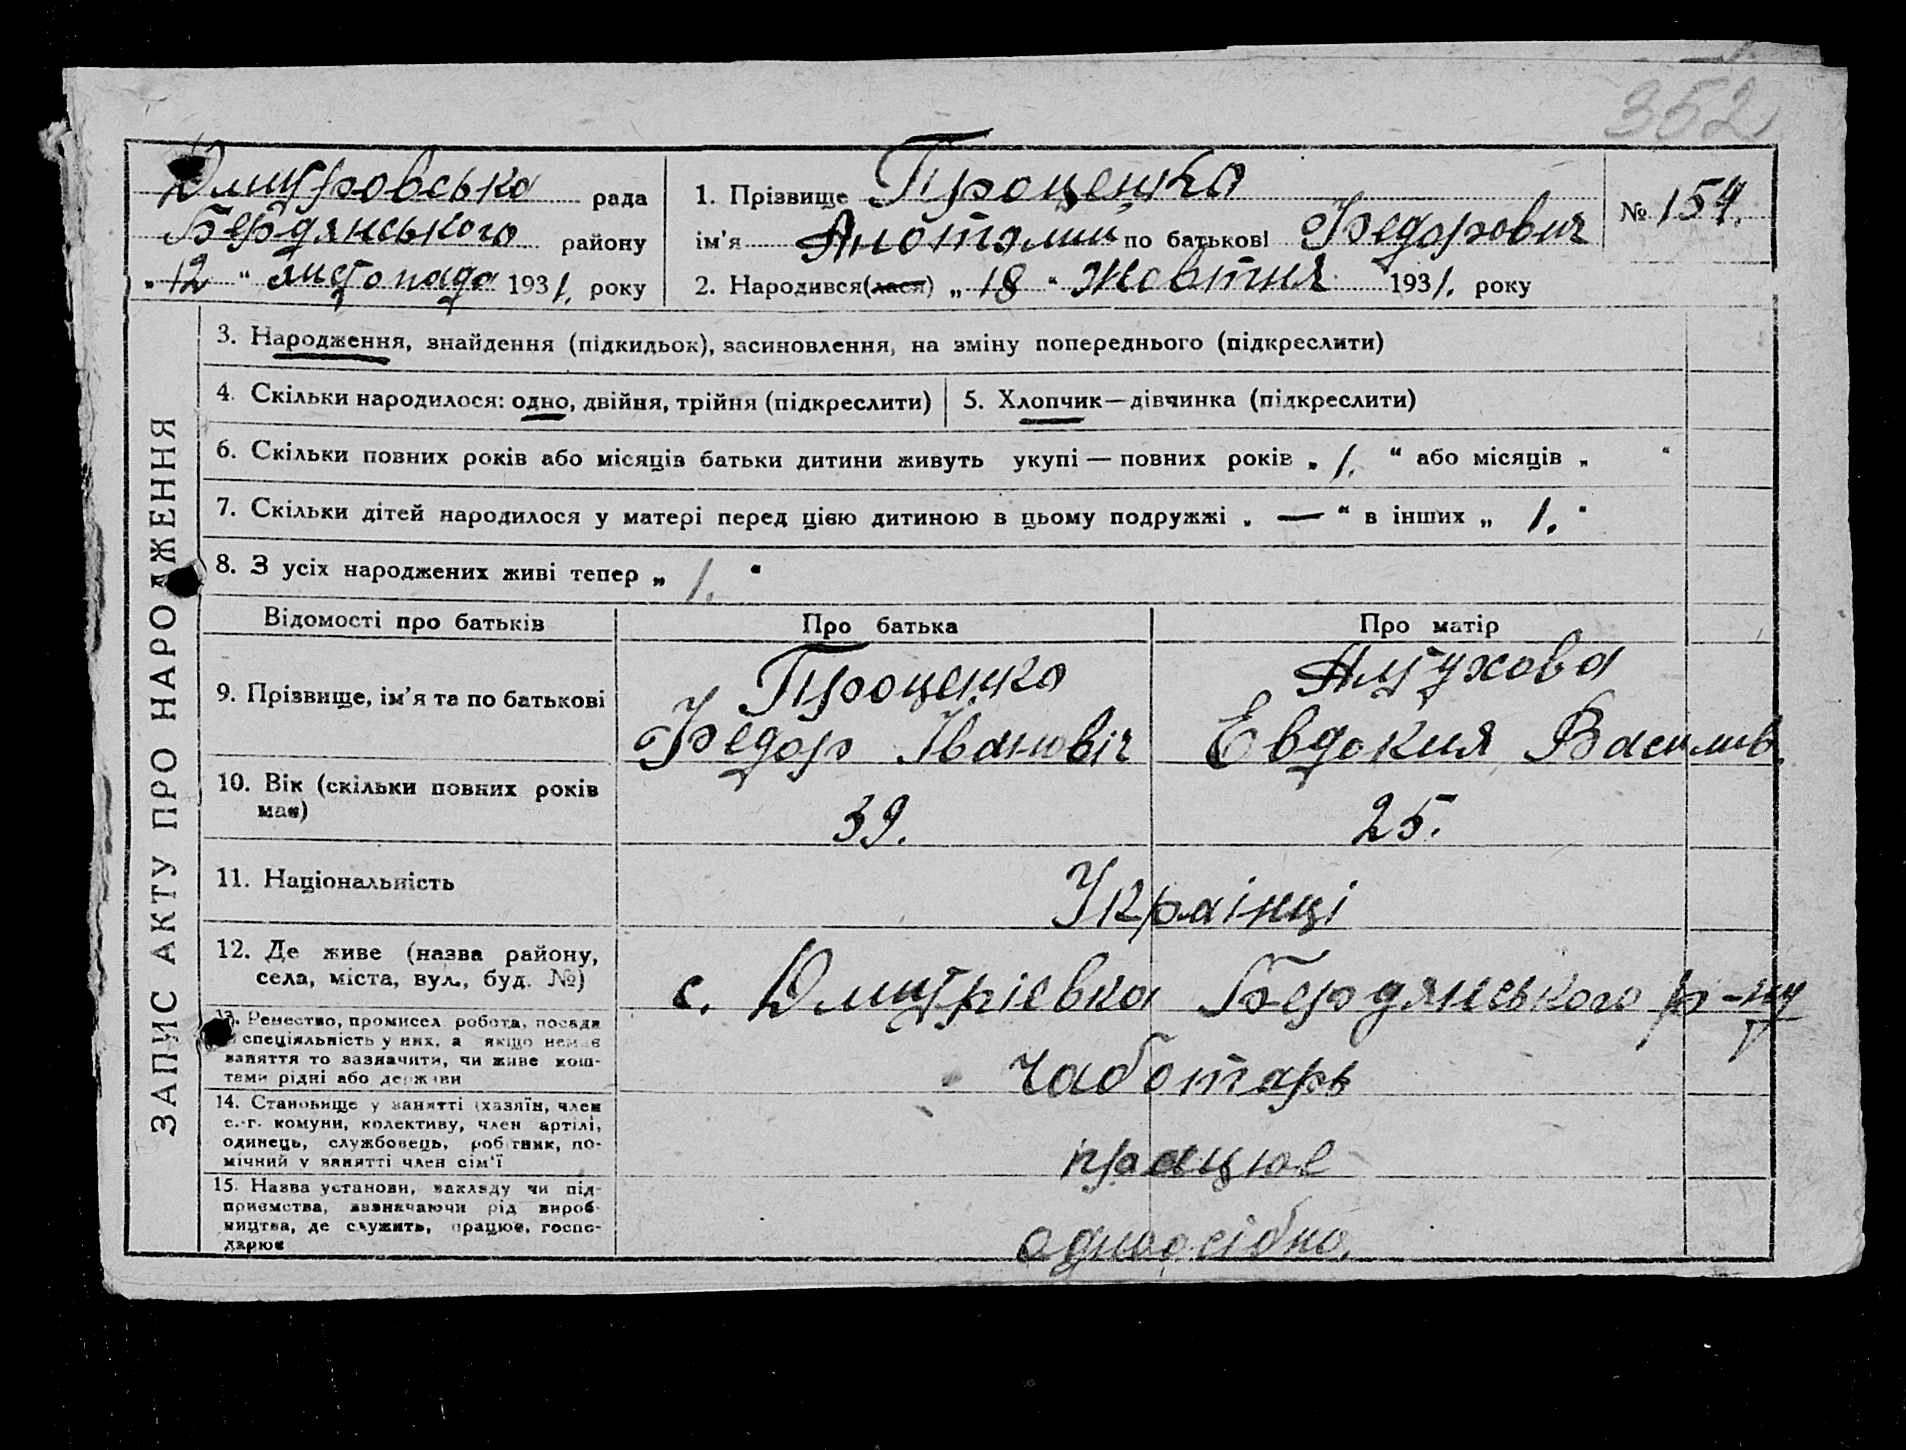 352
Дмитровська рада
Бердянського району
„ 12 “ листопада 1931. року
1. Прізвище Проценко
ім'я Анотолий по батькові Федорович
2. Народився(лася) „ 18 “ Жовтня 1931. року
№ 154.
ЗАПИС АКТУ ПРО НАРОДЖЕННЯ
3. Народження, знайдення (підкидьок), засиновлення, на зміну попереднього (підкреслити)
4. Скільки народилося: одно, двійня, трійня (підкреслити)
5. Хлопчик—дівчинка (підкреслити)
6. Скільки повних років або місяців батьки дитини живуть укупі — повних років „ 1. “ або місяців „ “
7. Скільки дітей народилося у матері перед цією дитиною в цьому подружжі „ — “ в інших „ 1. “
8. З усіх народжених живі тепер „ 1. “
Відомості про батьків Про батька Про матір
9. Прізвище, ім'я та по батькові
Проценко
Федор Івановіч
Евдокия Василів.
10. Вік (скільки повних років
має)
39. 25.
11. Національність Українці
12. Де живе (назва району,
села, міста, вул., буд. №)
с. Дмитріевка Бердянського р-ну
13. Ремество, промисел робота, посада
спеціяльність у них, а якщо немає
заняття то зазначити, чи живе кош-
тами рідні або держави
чаботарь
14. Становище у занятті (хазяїн, член
с.-г. комуни, колективу, член артілі,
одинець, службовець, робітник, по-
мічний у занятті член сім'ї
працює
15. Назва установи, закладу чи під-
приємства, зазначаючи рід вироб-
ництва, де служить, працює, госпо-
дарює
одноосібно.